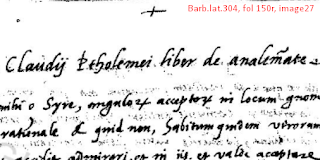 Barb.lat.304, fol 150r, image27
Claudij Ptholemei liber de analem̃ate
o Syre, angulorꝝ acceptorꝝ in locum gnom
rationale & quid non, habitum quidem utrorum
admirari, et in ijs, et valde acceptare